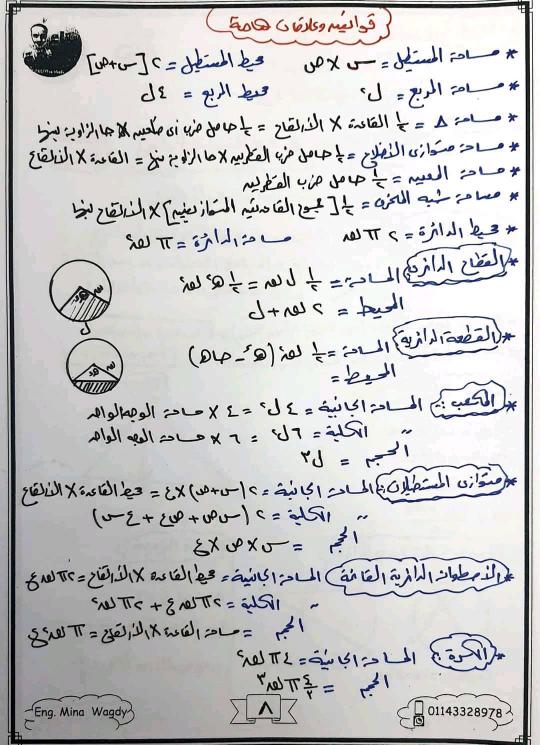 قوانين وعلاقات هامة
* مساحة المستطيل = س × ص    محيط المستطيل = ٢ [س + ص]
* مساحة المربع = ل٢    محيط المربع = ٤ ل
* مساحة Δ = ١/٢ القاعدة × الارتفاع = ١/٢ حاصل ضرب أي ضلعين × حا الزاوية بينهما
* مساحة متوازي الأضلاع = ١/٢ حاصل ضرب القطرين × حا الزاوية بينهما = القاعدة × الارتفاع
* مساحة المعين = ١/٢ حاصل ضرب القطرين
* مساحة شبه المنحرف = ١/٢ [مجموع القاعدتين المتوازيتين] × الارتفاع بينهما
* محيط الدائرة = ٢ π نق    مساحة الدائرة = π نق٢
* القطاع الدائري: المساحة = ١/٢ ل نق = ١/٢ هـ نق٢
المحيط = ٢ نق + ل
ل
* القطعة الدائرية: المساحة = ١/٢ نق٢ (هـ - حا هـ)
المحيط =
* المكعب :: المساحة الجانبية = ٤ ل٢ = ٤ × مساحة الوجه الواحد
" الكلية = ٦ ل٢ = ٦ × مساحة الوجه الواحد
الحجم = ل٣
* متوازي المستطيلات: المساحة الجانبية = ٢ (س + ص) × ع = محيط القاعدة × الارتفاع
" الكلية = ٢ (س ص + ص ع + ع س)
الحجم = س × ص × ع
* الأسطوانة الدائرية القائمة: المساحة الجانبية = محيط القاعدة × الارتفاع = ٢ π نق ع
" الكلية = ٢ π نق ع + ٢ π نق٢
الحجم = مساحة القاعدة × الارتفاع = π نق٢ ع
* الكرة :: المساحة الجانبية = ٤ π نق٢
الحجم = ٤/٣ π نق٣
Eng. Mina Wagdy
٨
01143328978